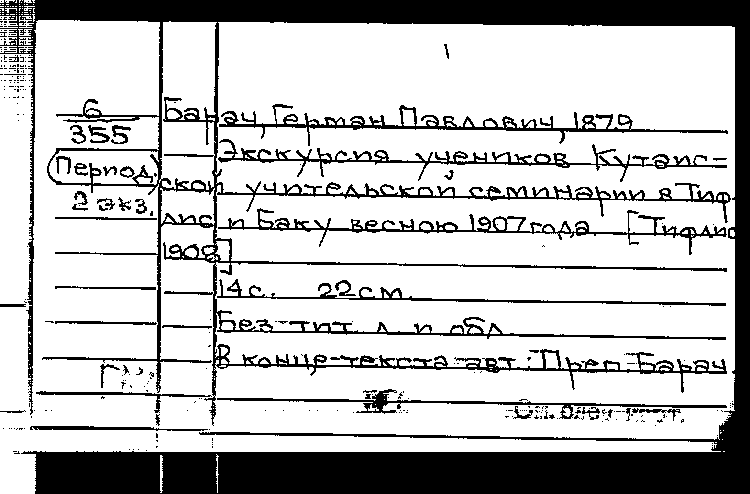 1
6
355
(Период.)
2 экз.
Барач, Герман Павлович, 1879
Экскурсия учеников Кутаис=
ской учительской семинарии в Тиф
лис и Баку весною 1907 года. [Тифлис
1908]
14 с. 22 см.
Без тит. л. и обл.
В конце текста авт.: Преп. Барач.